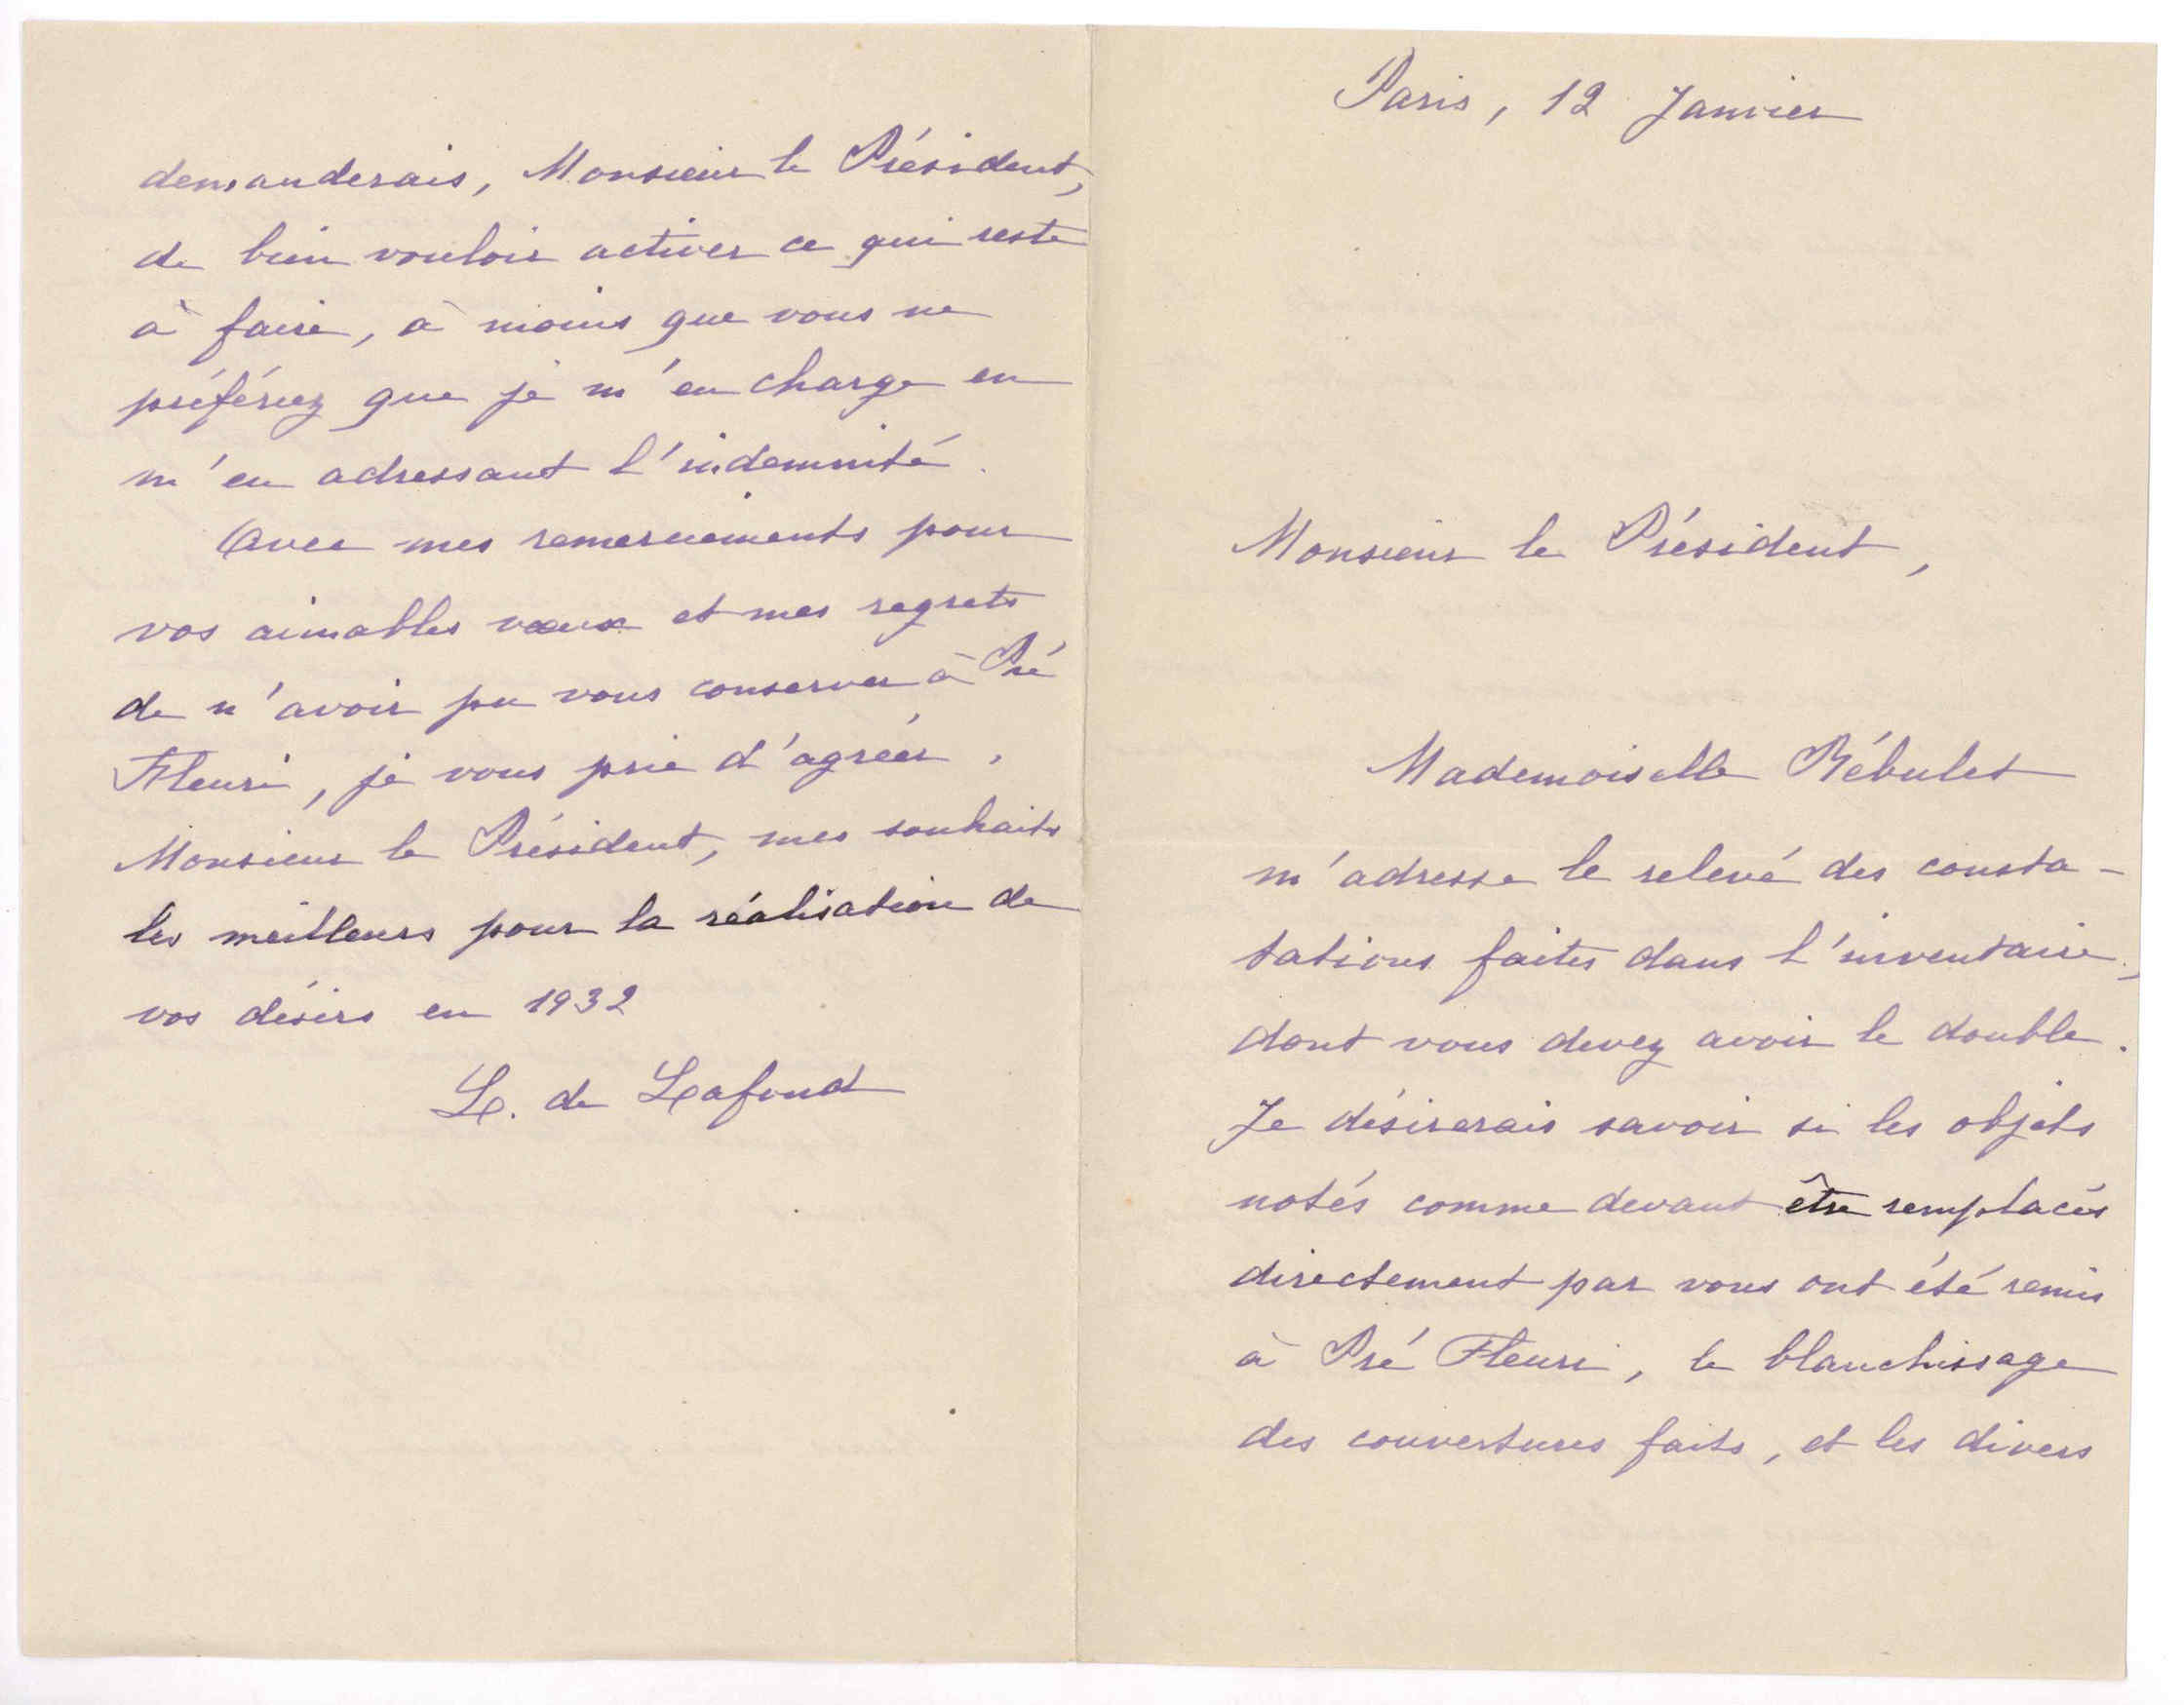 Paris, 12 Janvier
Monsieur le Président,
Mademoiselle Rébulet
m'adresse le relevé des consta-
tations faites dans l'inventaire,
dont vous devez avoir le double.
Je désirerais savoir si les objets
notés comme devant être remplacés
directement par vous ont été remis
à Pré Fleuri, le blanchissage
des couvertures faits, et les divers
demanderais, Monsieur le Président,
de bien vouloir activer ce qui reste
à faire, à moins que vous ne
préfériez que je m'en charge en
m'en adressant l'indemnité.
Avec mes remerciements pour
vos aimables vœux et mes regrets
de n'avoir pu vous conserver à Pré
Fleuri, je vous prie d'agréer,
Monsieur le Président, mes souhaits
les meilleurs pour la réalisation de
vos désirs en 1932
L. de Lafond